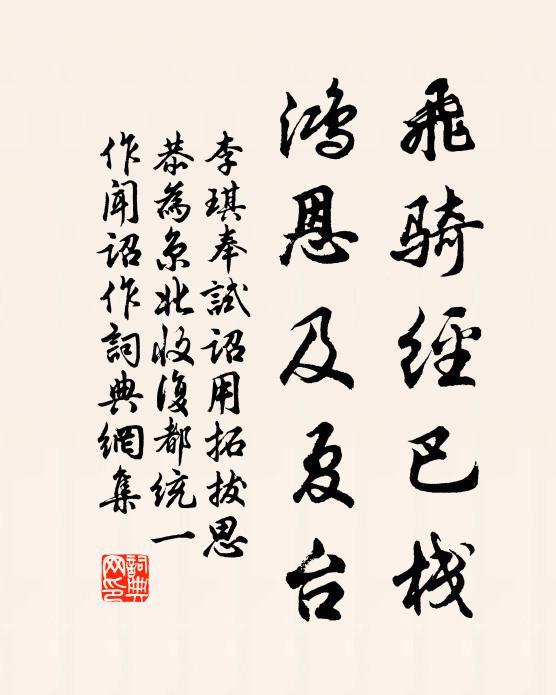 飛骑經巴栈
鸿恩及夏台
李琪奉試詔用拓拔思
恭為京北收復都統一
作聞詔作詞典網集
詞典
网印